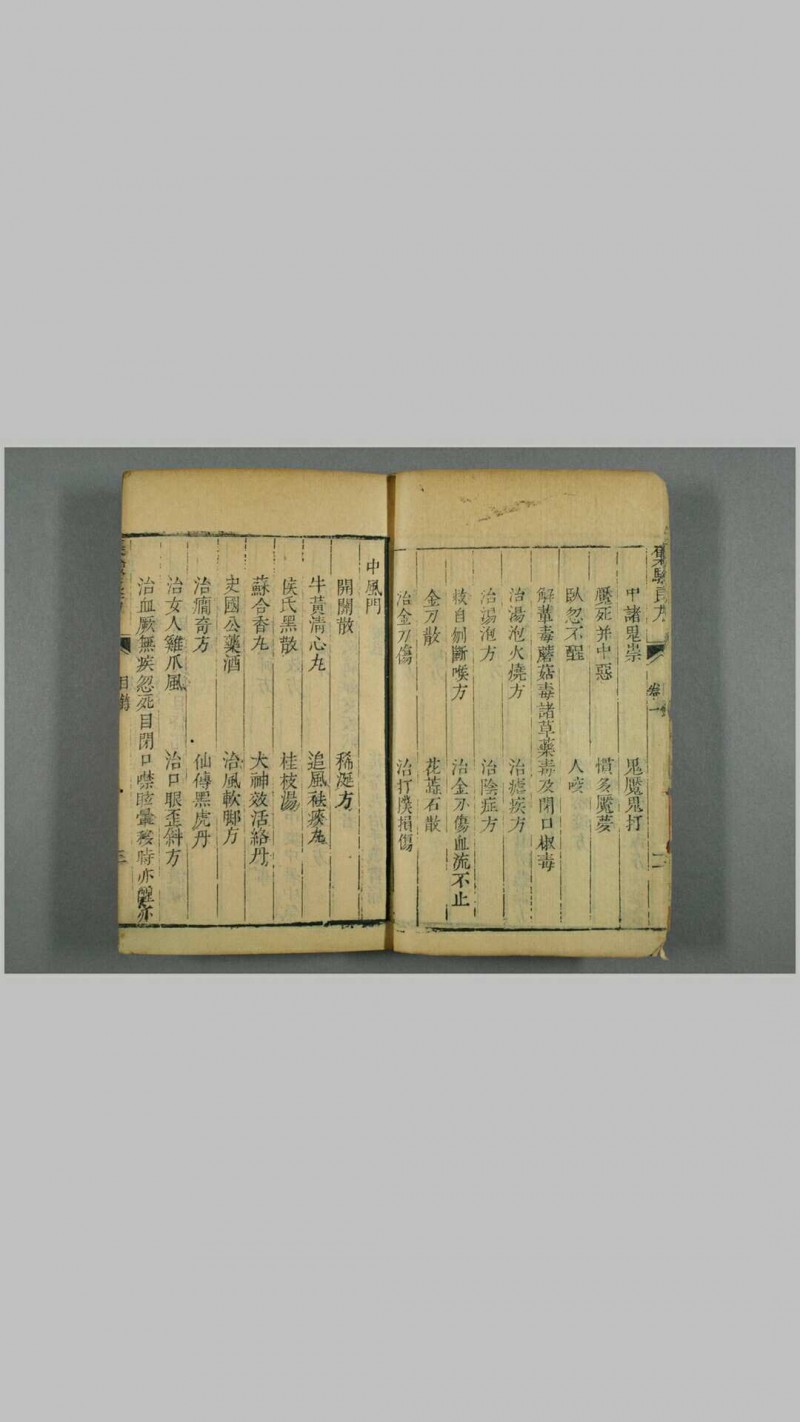 集驗良方 卷一 二
中諸鬼祟 鬼魘鬼打
魘死并中惡 慣多魘夢
臥忽不醒 人咬
解蕈毒蘑菇毒諸草藥毒及閉口椒毒
治湯泡火燒方 治瘧疾方
治湯泡方 治陰症方
救自刎斷喉方 治金刃傷血流不止
金刃散 花蕊石散
治金刃傷 治打撲損傷
中風門
開關散 稀涎方
牛黃清心丸 追風祛痰丸
侯氏黑散 桂枝湯
蘇合香丸 大神效活絡丹
史國公藥酒 治風軟腳方
治癇奇方 仙傳黑虎丹
治女人雞爪風 治口眼歪斜方
治血厥無疾忽死目閉口噤眩暈移時亦醒亦
目錄 三